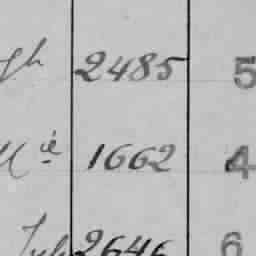 gh 2485 5
M ié 1662 4
2646 6